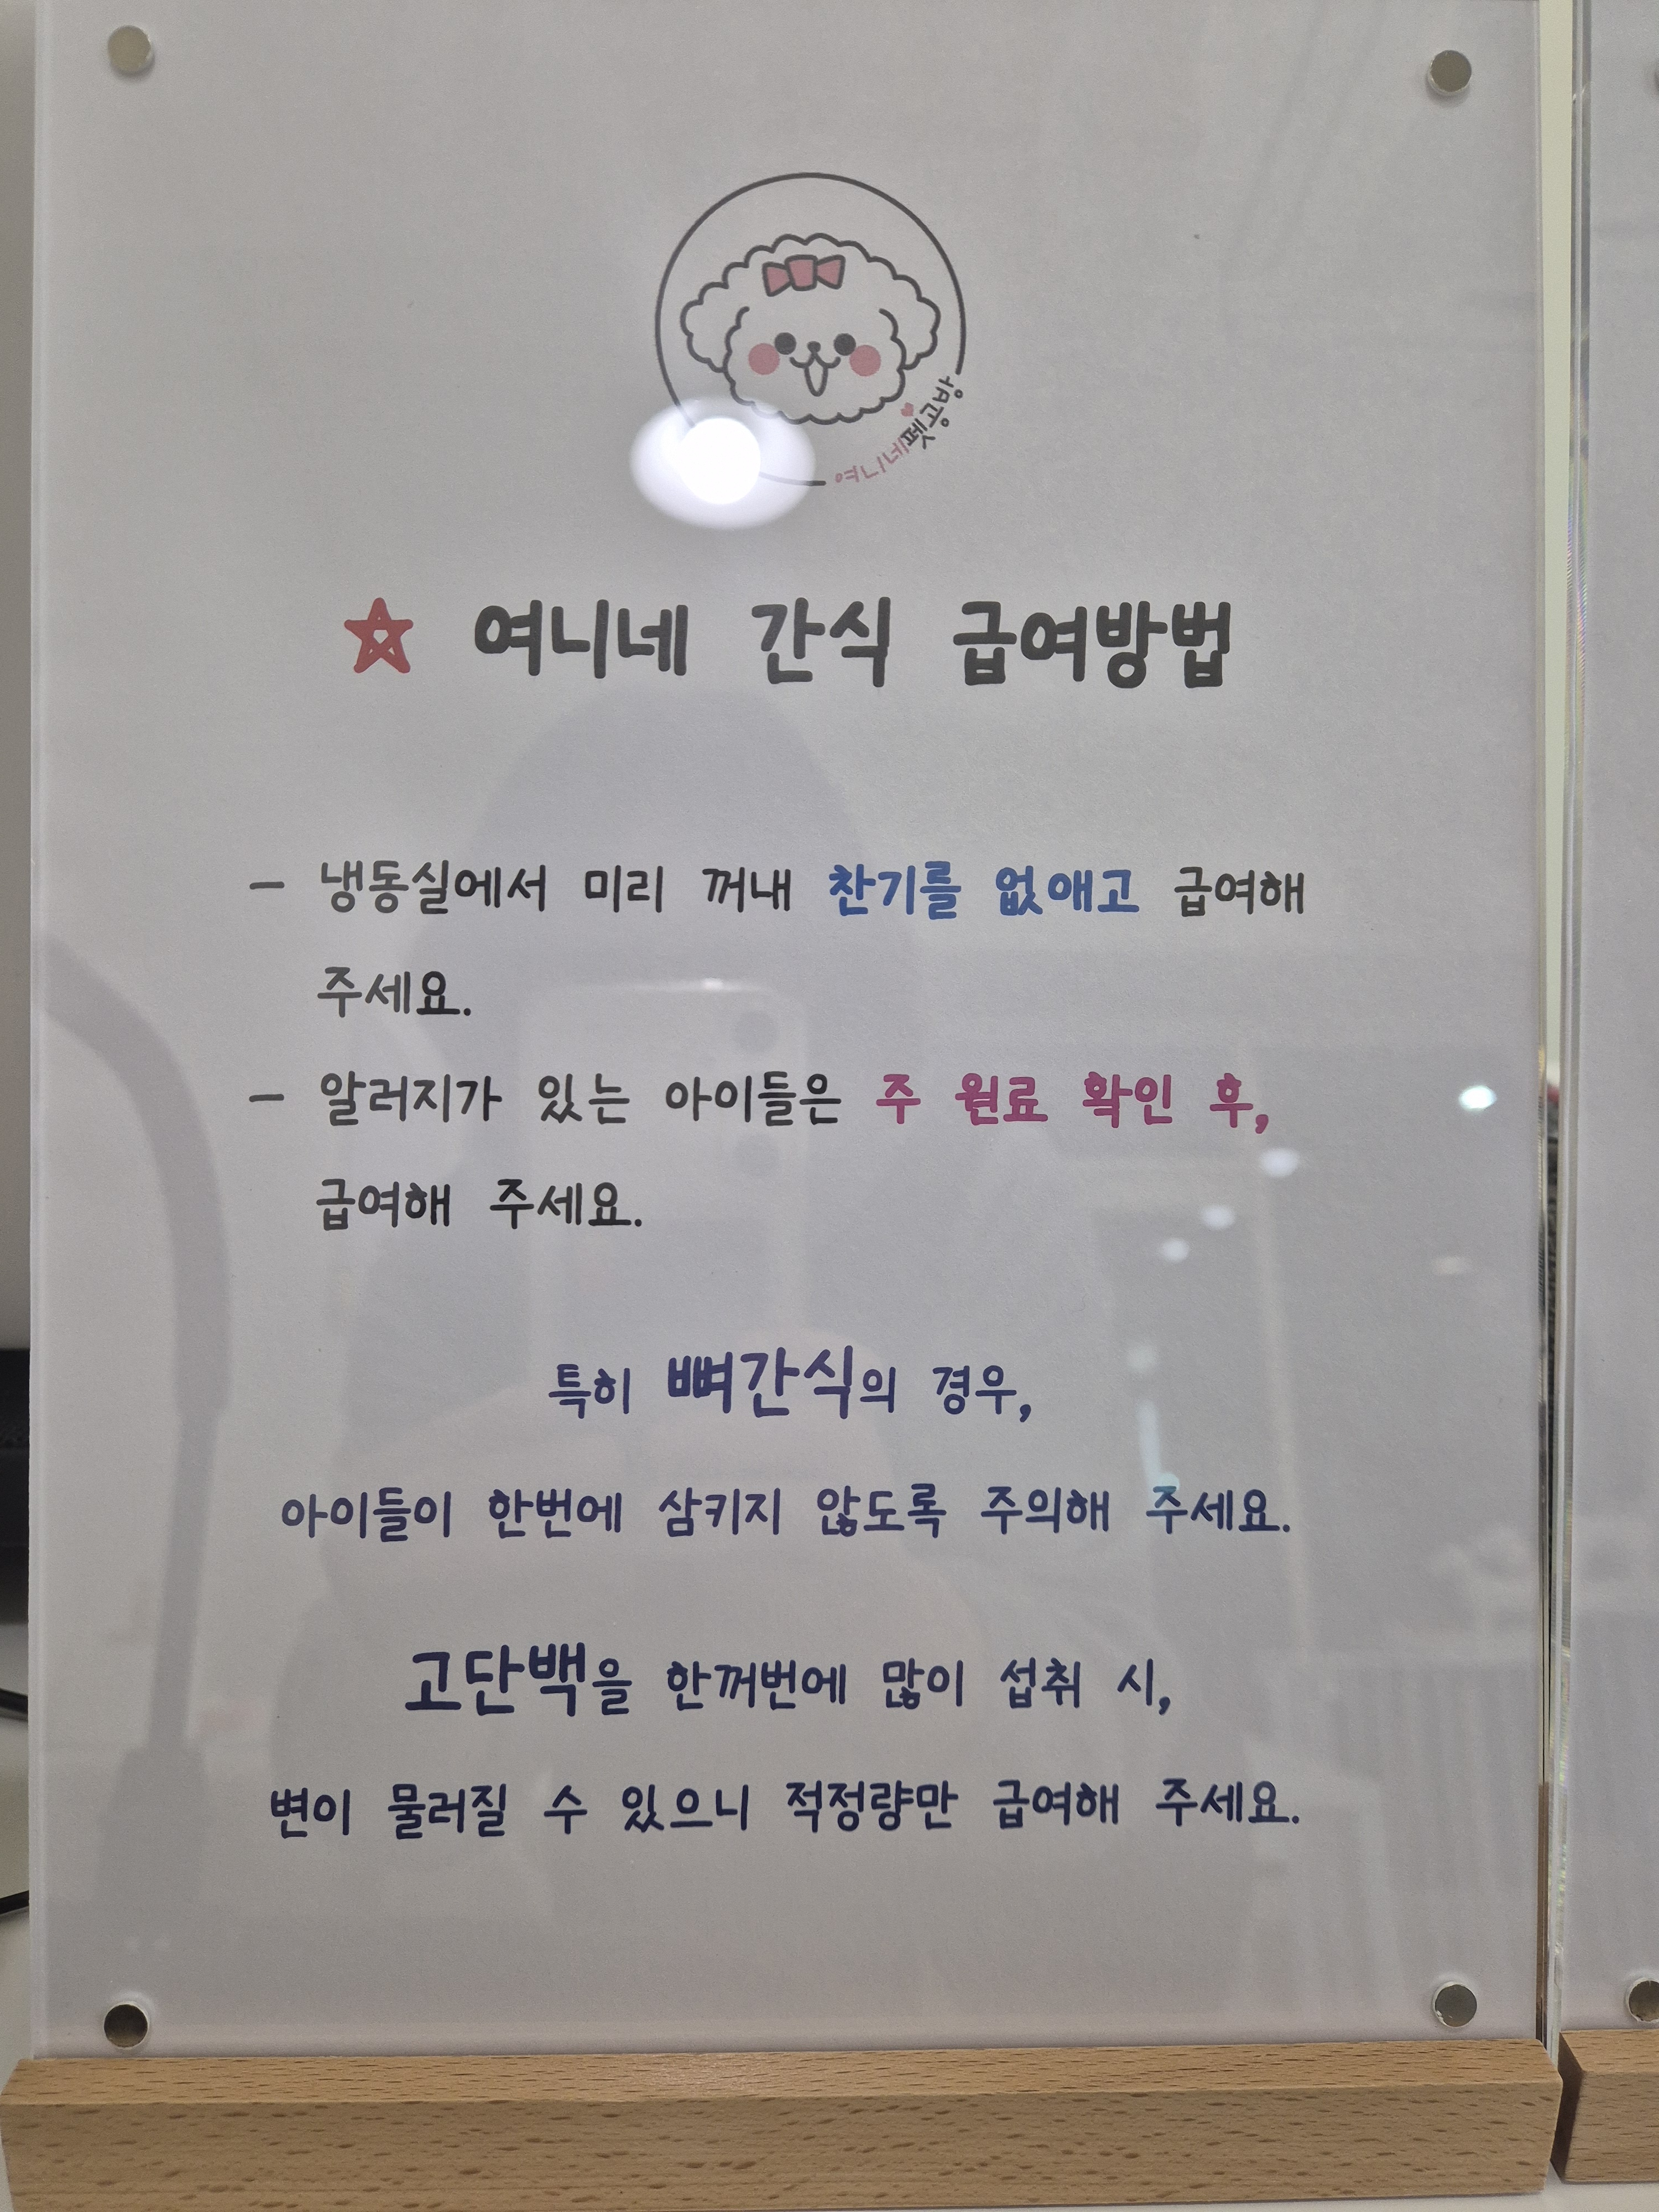 여니네펫공방
☆ 여니네 간식 급여방법
- 냉동실에서 미리 꺼내 찬기를 없애고 급여해
주세요.
- 알러지가 있는 아이들은 주 원료 확인 후,
급여해 주세요.
특히 뼈간식의 경우,
아이들이 한번에 삼키지 않도록 주의해 주세요.
고단백을 한꺼번에 많이 섭취 시,
변이 물러질 수 있으니 적정량만 급여해 주세요.